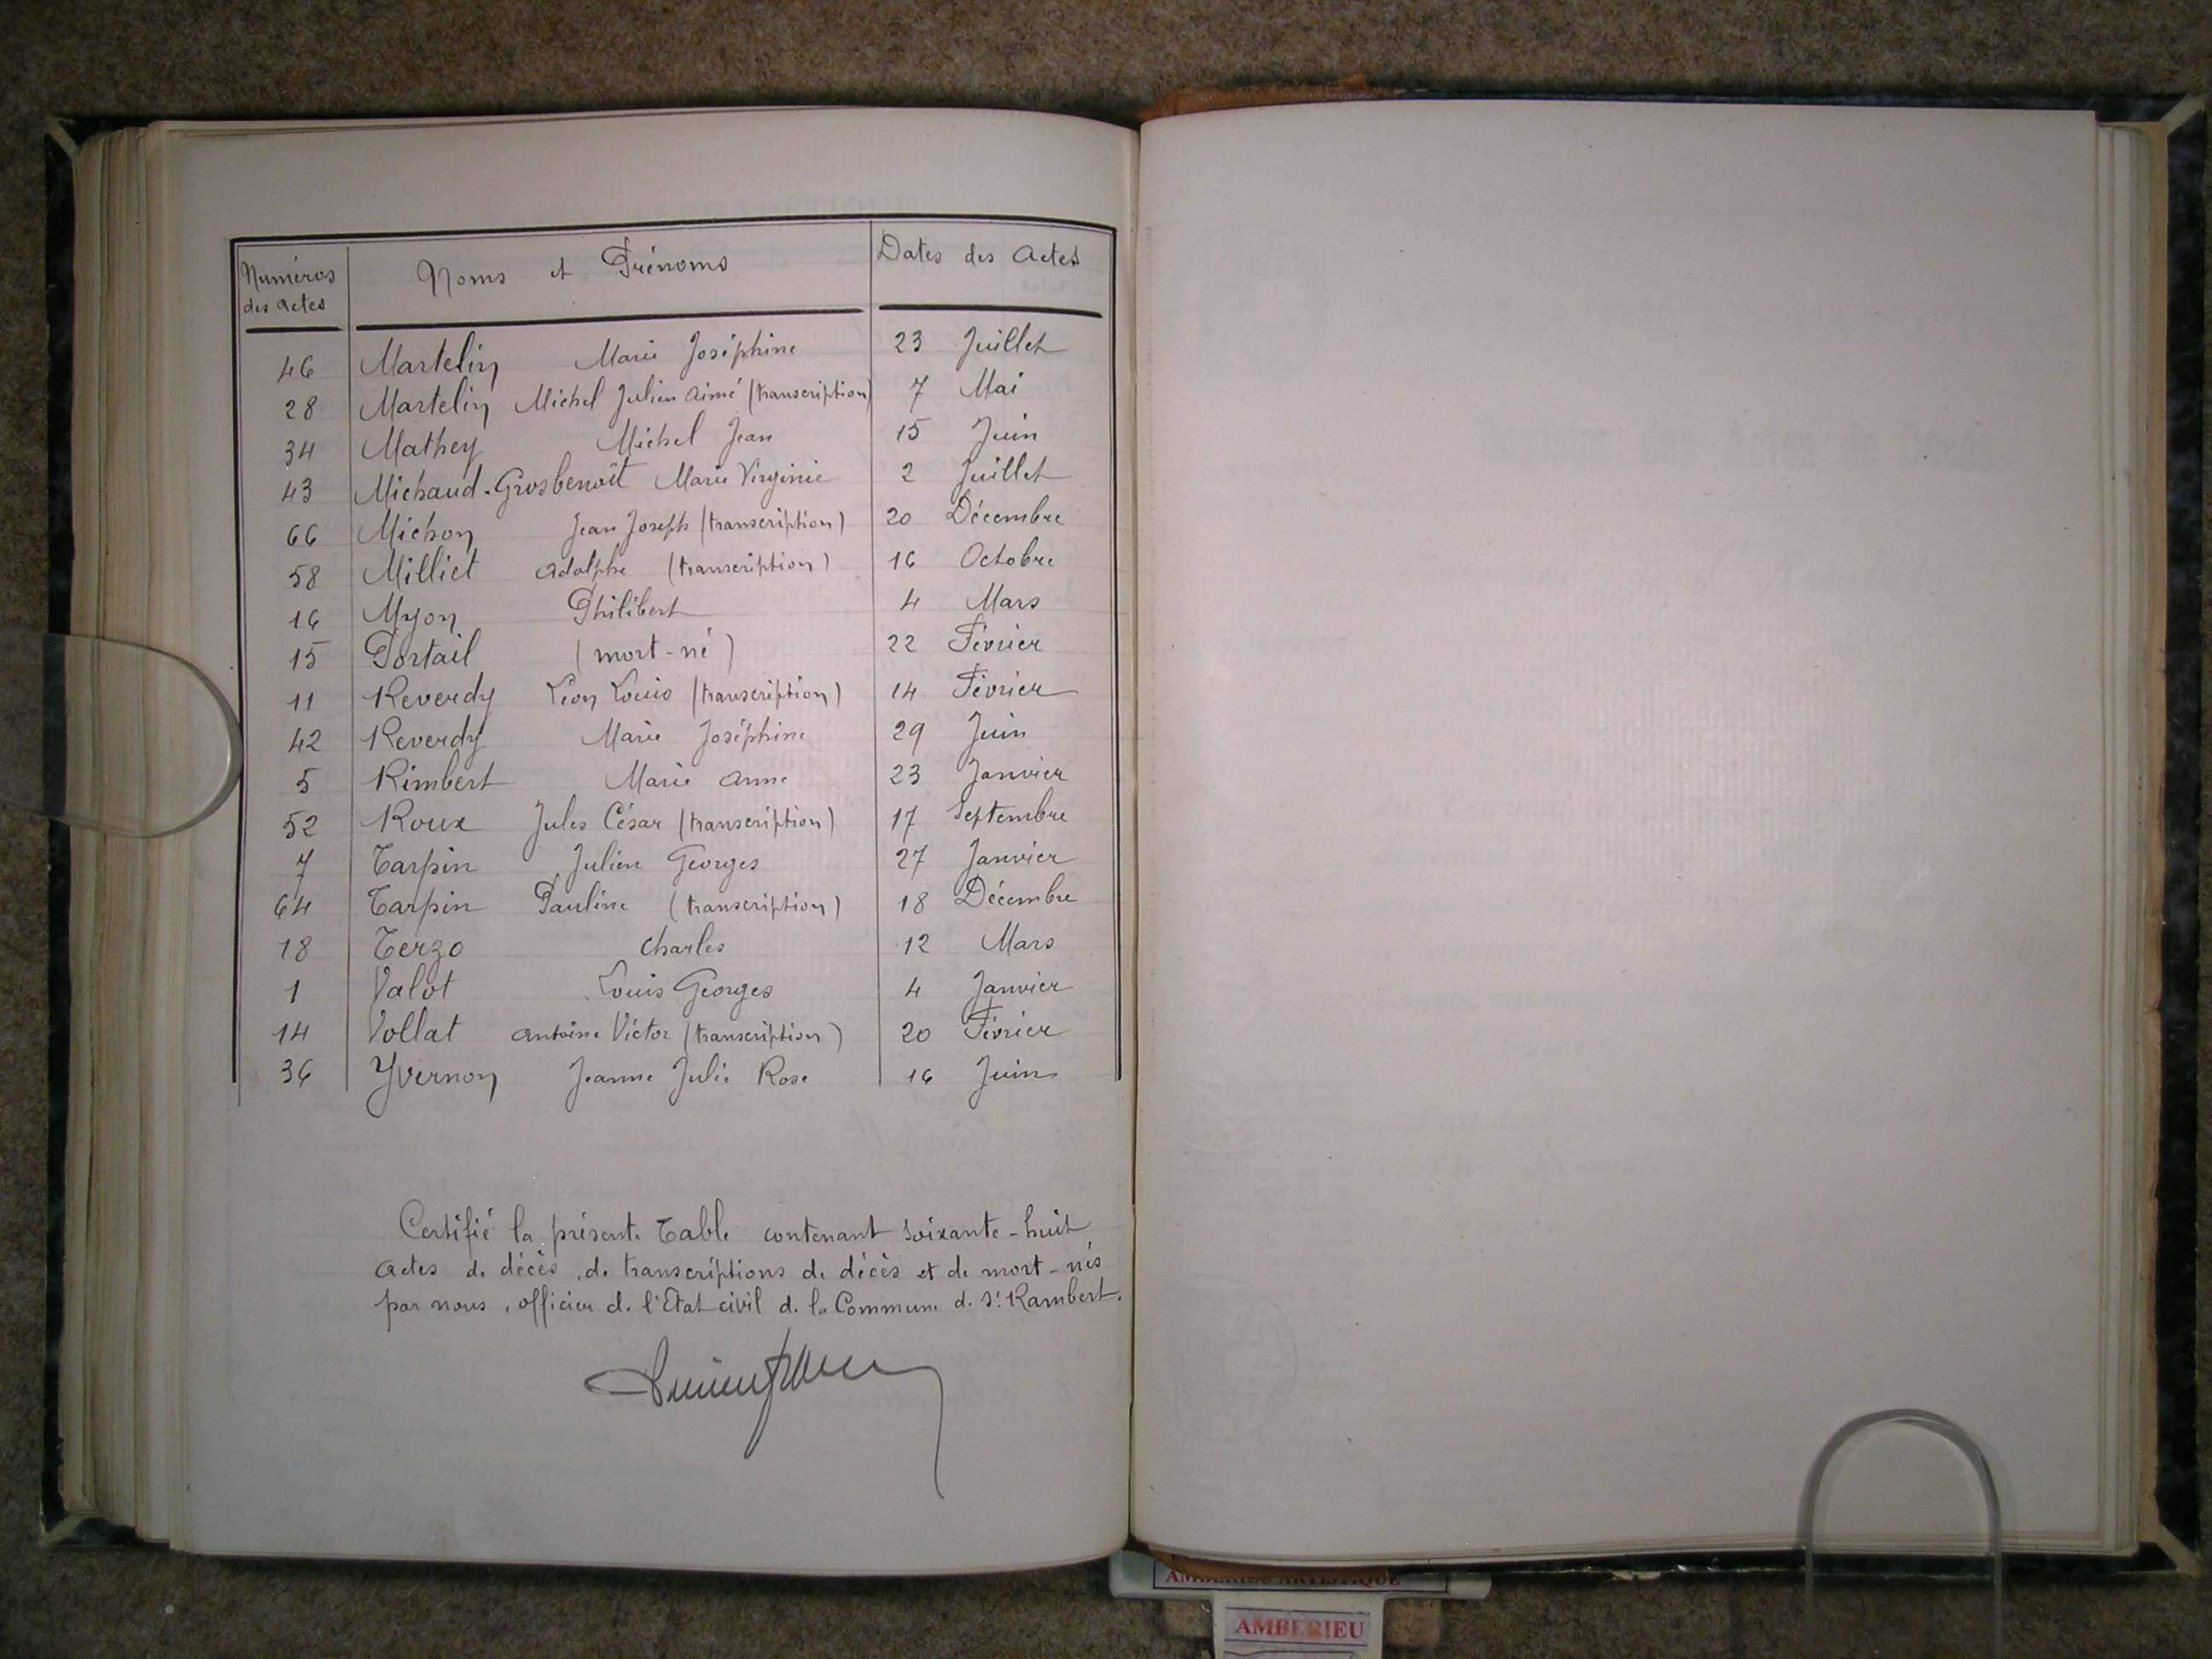 Numéros des actes Noms et Prénoms Dates des Actes
46 Martelin Marie Joséphine 23 Juillet
28 Martelin Michel Julien Aimé (transcription) 7 Mai
34 Mathey Michel Jean 15 Juin
43 Michaud-Grosbenoît Marie Virginie 2 Juillet
66 Michon Jean Joseph (transcription) 20 Décembre
58 Milliet Adolphe (transcription) 16 Octobre
16 Myon Philibert 4 Mars
15 Portail (mort-né) 22 Février
11 Reverdy Léon Louis (transcription) 14 Février
42 Reverdy Marie Joséphine 29 Juin
5 Rimbert Marie Anne 23 Janvier
52 Roux Jules César (transcription) 17 Septembre
7 Tarpin Julien Georges 27 Janvier
64 Tarpin Pauline (transcription) 18 Décembre
18 Terzo Charles 12 Mars
1 Valot Louis Georges 4 Janvier
14 Vollat Antoine Victor (transcription) 20 Février
36 Yvernon Jeanne Julie Rose 16 Juin
Certifié la présente Table contenant soixante-huit
actes de décès, de transcriptions de décès et de mort-nés
par nous, officier de l'Etat civil de la Commune de St Rambert.
AMBERIEU ARTISTIQUE
AMBERIEU